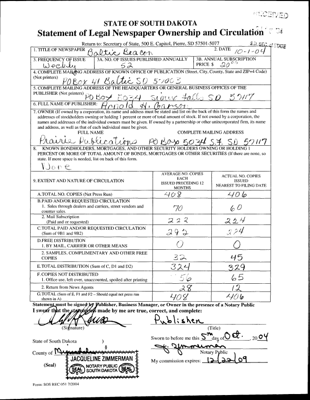 RECEIVED
STATE OF SOUTH DAKOTA
Statement of Legal Newspaper Ownership and Circulation
Return to: Secretary of State, 500 E. Capitol, Pierre, SD 57501-5077
1. TITLE OF NEWSPAPER Baltic Beacon 2. DATE 10-1-04
3. FREQUENCY OF ISSUE Weekly 3A. NO. OF ISSUES PUBLISHED ANNUALLY 52 3B. ANNUAL SUBSCRIPTION PRICE $ 20.00
4. COMPLETE MAILING ADDRESS OF KNOWN OFFICE OF PUBLICATION (Street, City, County, State and ZIP+4 Code)
(Not printers) PO Box 41 Baltic SD 57003
5. COMPLETE MAILING ADDRESS OF THE HEADQUARTERS OR GENERAL BUSINESS OFFICES OF THE
PUBLISHER (Not printer) PO Box 5034 Sioux Falls, SD 57117
6. FULL NAME OF PUBLISHER:
7. OWNER (If owned by a corporation, its name and address must be stated and list on the back of this form the names and
addresses of stockholders owning or holding 1 percent or more of total amount of stock. If not owned by a corporation, the
names and addresses of the individual owners must be given. If owned by a partnership or other unincorporated firm, its name
and address, as well as that of each individual must be given.
FULL NAME COMPLETE MAILING ADDRESS
Prairie Publications PO Box 5034 S.F. SD 57117
8. KNOWN BONDHOLDERS, MORTGAGES, AND OTHER SECURITY HOLDERS OWNING OR HOLDING 1
PERCENT OR MORE OF TOTAL AMOUNT OF BONDS, MORTGAGES OR OTHER SECURITIES (If there are none, so
state. If more space is needed, list on back of this form.
None
9. EXTENT AND NATURE OF CIRCULATION
AVERAGE NO. COPIES EACH ISSUED PRECEDING 12 MONTHS
ACTUAL NO. COPIES ISSUED NEAREST TO FILING DATE
A. TOTAL NO. COPIES (Net Press Run) 408 406
B. PAID AND/OR REQUESTED CIRCULATION
1. Sales through dealers and carriers, street vendors and
counter sales 70 60
2. Mail Subscription
(Paid and or requested) 222 224
C. TOTAL PAID AND/OR REQUESTED CIRCULATION
(Sum of 9B1 and 9B2) 292
D. FREE DISTRIBUTION
1. BY MAIL, CARRIER OR OTHER MEANS 0 0
2. SAMPLES, COMPLIMENTARY AND OTHER FREE
COPIES 32 45
E. TOTAL DISTRIBUTION (Sum of C, D1 and D2) 324 329
F. COPIES NOT DISTRIBUTED
1. Office use, left over, unaccounted, spoiled after printing 56 65
2. Return from News Agents 28 12
G. TOTAL (Sum of E, F1 and F2 – Should equal net press run
shown in A) 408 406
Statement must be signed by Publisher, Business Manager, or Owner in the presence of a Notary Public
I swear that the statements made by me are true, correct, and complete:
Publisher
(Signature) (Title)
State of South Dakota ) Sworn to before me this 5th day of Oct. 2004
County of Minnehaha ) Notary Public
(Seal) My commission expires: 12/22/09
JACQUELINE ZIMMERMAN
NOTARY PUBLIC
SOUTH DAKOTA
Form: SOS REC 051 7/2004